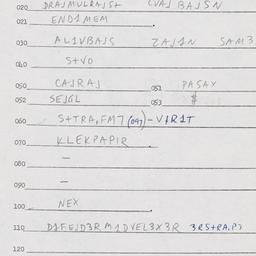 020 DRAJMULRAJSt CVAJ BAJSN
021 ENDIMEM
030 ALIVBAJS ZAJIN SAM3
040 StVO
050 CAJRAJ 051 PASAY
052 SEJGL 053 $
060 StRA,FM7 (047)-VIRIT
070 KLEKPAPIR
080 —
090 —
100 NEX
110 3RStRA,P7
120